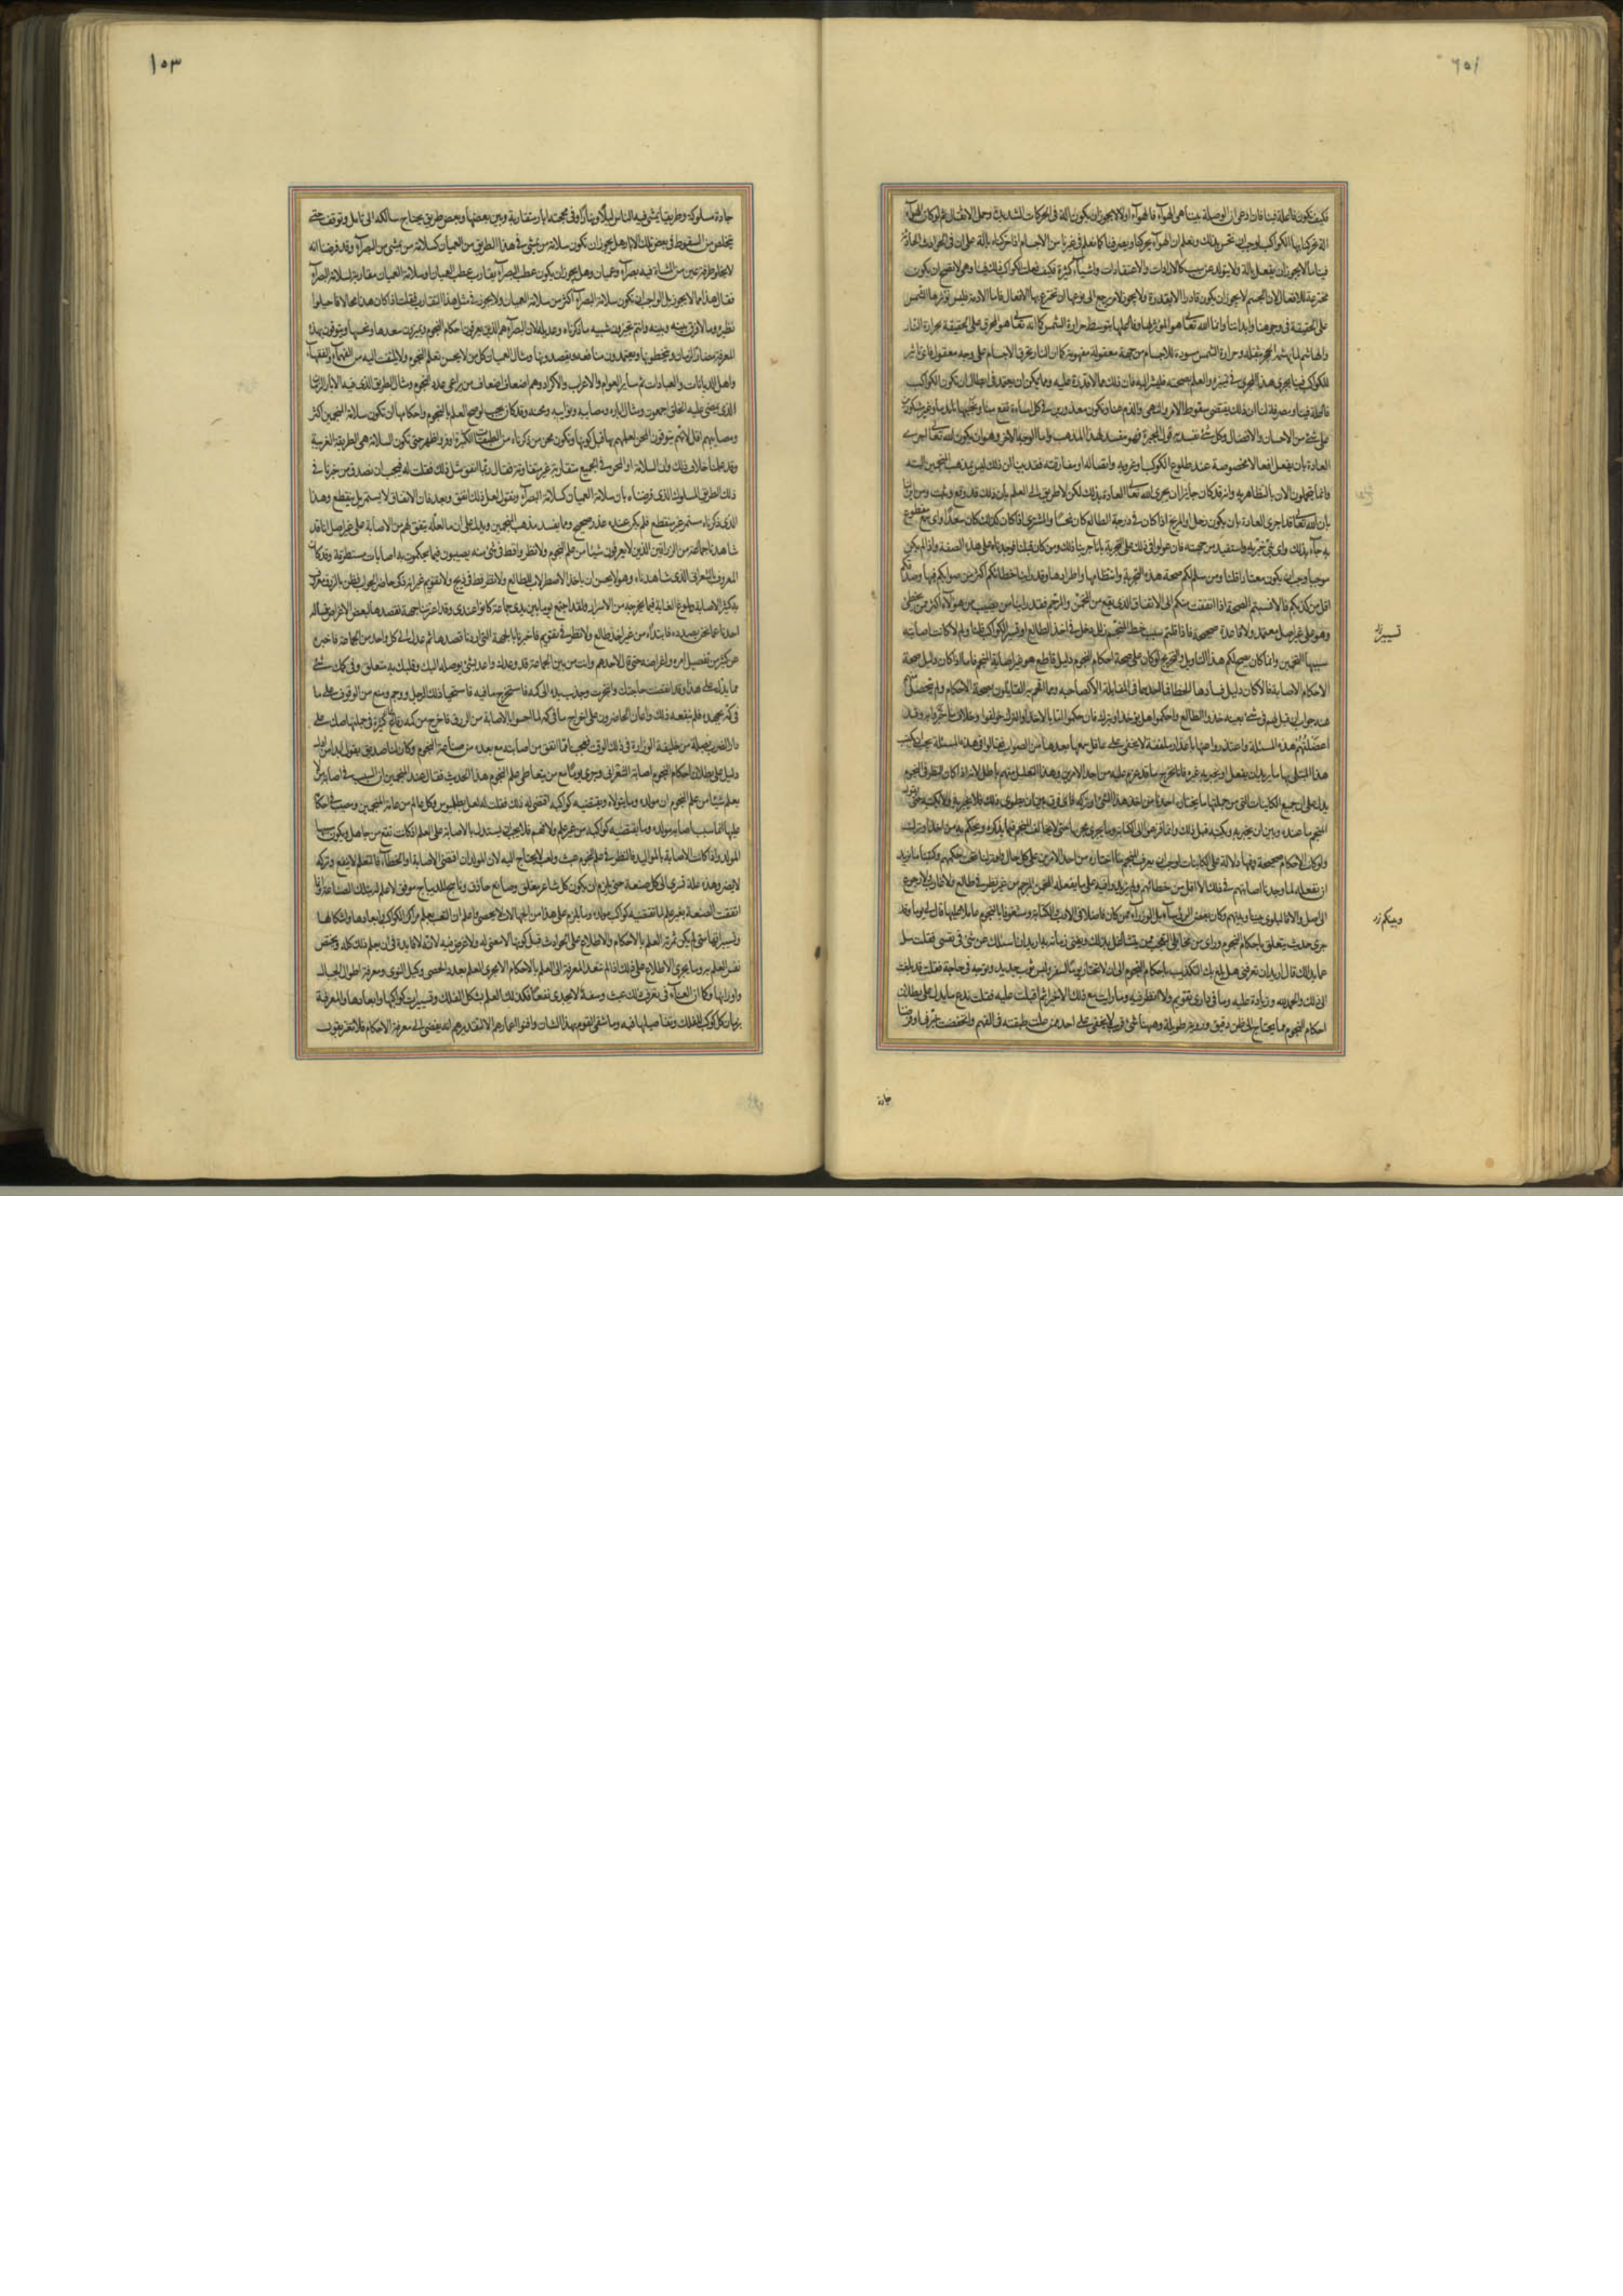 فكيف تكون فاعلة فينا فان ادعى ان الوصلة بيننا هى الهواء فالهواء اولا لا يجوز ان يكون الة فى الحركات الشديدة وحمل الاثقال ثم لو كان الهواء
الة تحركنا بها الكواكب لوجب ان نحس بذلك ونعلم ان الهواء يحركنا ويصرفنا كما نعلم فى غيرنا من الاجسام اذا حركناه بالة على ان فى الحوادث الحادثة
فينا ما لا يجوز ان يفعل بالة ولا يتولد عن سبب كالارادات والاعتقادات واشياء كثيرة فكيف فعلت الكواكب ذلك فينا وهى لا تصح ان تكون
مخترعة للافعال لان الجسم لا يجوز ان يكون قادرا الا بقدرة والقدرة لا يجوز لامر يرجع الى نوعها ان تخترع بها الافعال فاما الادمة فليس تؤثر فيها الشمس
على الحقيقة فى وجوهنا وابداننا وانما الله تعالى هو المؤثر لها وفاعلها بتوسط حرارة الشمس كما انه تعالى هو المحرق على الحقيقة بحرارة النار
والهاشم لما يهشمه الحجر بثقله وحرارة الشمس مسودة للاجسام من جهة معقولة مفهومة كما ان النار تحرق الاجسام على وجه معقول فاى تاثير
للكواكب فينا يجرى هذا المجرى فى تميزه والعلم بصحته فليشر اليه فان ذلك مما لا قدرة عليه ومما يمكن ان يعتمد فى ابطال ان تكون الكواكب
فاعلة فينا ومصرفة لنا ان ذلك يقتضى سقوط الامر والنهى والذم عنا ونكون معذورين فى كل اساءة تقع منا ونجنيها بايدينا وغير مشكورين
على شئ من الاحسان والافضال وكل شئ نفسد به قول المجبرة فهو مفسد لهذا المذهب واما الوجه الاخر وهو ان يكون الله تعالى اجرى
العادة بان يفعل افعالا مخصوصة عند طلوع الكواكب وغروبه واتصاله او مفارقته فقد بينا ان ذلك ليس بمذهب المنجمين البتة
وانما يتجملون الان بالتظاهر به وانه قد كان جائزا ان يجرى الله تعالى العادة بذلك لكن لا طريق الى العلم بان ذلك قد وقع وثبت ومن اين
بان الله تعالى قد اجرى العادة بان يكون زحل او المريخ اذا كان فى درجة الطالع كان نحسا والمشترى اذا كان كذلك كان سعدا واى سمع مقطوع
به جاء بذلك واى نبى خبر به واستفيد من جهته فان عولوا فى ذلك على التجربة بانا جربنا ذلك ومن كان قبلنا فوجدناه على هذه الصفة واذا لم يكن
موجبا وجب ان يكون معتادا قلنا ومن سلم لكم صحة هذه التجربة وانتظامها واطرادها وقد راينا خطائكم اكثر من صوابكم فيها وصدقكم
اقل من كذبكم فالا نسبتم الصحة اذا اتفقت منكم الى الاتفاق الذى يقع من المخمن والمرجم فقد راينا من يصيب من هؤلاء اكثر ممن يخطئ
وهو على غير اصل معتمد ولا قاعدة صحيحة فاذا قلتم سبب خطا المنجم زلل دخل فى اخذ الطالع او تسيير الكواكب قلنا ولم لا كانت اصابته
سببها التخمين وانما كان يصح لكم هذا التاويل والتخريج لو كان على صحة احكام النجوم دليل قاطع هو غير اصابة المنجم فاما اذا كان دليل صحة
الاحكام الاصابة فالا كان دليل فسادها الخطا فما احدهما فى المقابلة الا كصاحبه ومما افحم به القائلون بصحة الاحكام ولم يتحصل
عنه جواب ان قيل لهم فى شئ بعينه خذوا الطالع واحكموا هل يؤخذ او يترك فان حكموا اما بالاخذ او الترك خولفوا وفعل خلاف ما خبروا به وقد
اعضلتهم هذه المسئلة واعتذروا عنها باعذار ملفقة لا يخفى على عاقل سمعها بعدها من الصواب فقالوا فى هذه المسئلة يجب ان يكتب
هذا المبتلى بها ما يريد ان يفعل او يخبر به غيره فانا نخرج ما قد عزم عليه من احد الامرين وهذا التعليل منهم باطل لانه اذا كان النظر فى النجوم
يدل على جميع الكاينات التى من جملتها ما يختاره احدنا من اخذ هذا الشئ او تركه فاى فرق بين ان يطوى ذلك فلا يخبر به ولا يكتبه حتى يقول
المنجم ما عنده وبين ان يخبر به ويكتبه قبل ذلك وانما فزعوا الى الكتابة وما يجرى مجراها حتى لا يخالف المنجم فيما يذكره ويحكم به من اخذ او ترك
ولو كان الاحكام صحيحة وفيها دلالة على الكاينات لوجب ان يعرف المنجم ما اختاره من احد الامرين على كل حال
ان نفعله لما وجدنا اصابتهم فى ذلك الا اقل من خطائهم ولم يزيدوا فيه على ما يفعله المخمن المرجم من غير نظر فى طالع ولا غارب ولا رجوع
الى اصل والا فالبلوى بيننا وبينهم وكان بعض الرؤساء بل الوزراء ممن كان فاضلا فى الادب والكتابة ومشغوفا بالنجوم عاملا عليها قال لى يوما وقد
جرى حديث يتعلق باحكام النجوم وراى من مخايلى التعجب ممن يتشاغل بذلك ويفنى زمانه به اريد ان اسئلك عن شئ فى نفسى فقلت سل
عما بدا لك قال اريد ان تعرفنى هل بلغ بك التكذيب باحكام النجوم الى ان لا تختار يوما لسفر ولبس ثوب جديد وتوجه فى حاجة فقلت قد بلغت
الى ذلك والحمد لله وزيادة عليه وما فى دارى تقويم ولا انظر فيه وما رايت مع ذلك الا خيرا ثم اقبلت عليه فقلت ندع ما يدل على بطلان
احكام النجوم مما يحتاج الى ظن دقيق ورويه طويلة وهيهنا شئ قريب لا يخفى على احد ممن علت طبقته فى الفهم وانخفضت خبرنى لو فرضنا
تسيير
ويحكم
جادة
١٥٣
جادة مسلوكة وطريقا يمشى فيه الناس ليلا ونهارا وفى محجته ابار متقاربة وبين بعضها وبعض طريق يحتاج سالكه الى تامل وتوقف حتى
يتخلص من السقوط فى بعض تلك الابار هل يجوز ان تكون سلامة من يمشى فى هذا الطريق من العميان كسلامة من يمشى من البصراء وقد فرضنا انه
لا يخلو طرفة عين من المشاة فيه بصراء وعميان وهل يجوز ان يكون عطب البصراء يقارب عطب العميان او سلامة العميان مقاربة لسلامة البصراء
فقال هذا مما لا يجوز بل الواجب ان تكون سلامة البصراء اكثر من سلامة العميان ولا يجوز فى مثل هذا التقارب فقلت اذا كان هذا محالا فاحيلوا
نظيره وما لا فرق بينه وبينه وانتم تجيزون شبيه ما ذكرناه وعديله لان البصراء هم الذين يعرفون احكام النجوم ويميزون سعدها ونحسها ويتوقون بهذه
المعرفة مضار الزمان ويتخطونها ويعتمدون منافعه ويقصدونها ومثال العميان كل من لا يحسن تعلم النجوم ولا يلتفت اليه من الفهماء والفقهاء
واهل الديانات والعبادات ثم ساير العوام والاعراب والاكراد وهم اضعاف اضعاف من يراعى علم النجوم ومثال الطريق الذى فيه الابار الزمان
الذى يمضى عليه الخلق اجمعون ومثال اباره مصايبه ونوايبه ومحنه وقد كان يجب لو صح العلم بالنجوم واحكامها ان تكون سلامة المنجمين اكثر
ومصايبهم اقل لانهم يتوقون المحن لعلمهم بها قبل كونها وتكون محن من ذكرناه من الطبقات الكثيرة اوفر واظهر حتى تكون السلامة هى الطريفة الغريبة
وقد علمنا خلاف ذلك وان السلامة او المحن فى الجميع متقاربة غير متفاوتة فقال ربما اتفق مثل ذلك فقلت له فيجب ان نصدق من خبرنا فى
ذلك الطريق المسلوك الذى فرضناه بان سلامة العميان كسلامة البصراء ونقول لعل ذلك اتفق وبعد فان الاتفاق لا يستمر بل ينقطع وهذا
الذى ذكرناه مستمر غير منقطع فلم يكن عنده عذر صحيح ومما يفسد مذهب المنجمين ويدل على ان ما لعله يتفق لهم من الاصابة على غير اصل انا قد
شاهدنا جماعة من الزراقين الذين لا يعرفون شيئا من علم النجوم ولا نظروا قط فى شئ منه يصيبون فيما يحكمون به اصابات مستطرفة وقد كان
المعروف بالشعرانى الذى شاهدناه وهو لا يحسن ان ياخذ الاصطرلاب للطالع ولا نظر قط فى زيج ولا تقويم غير انه ذكى حاضر الجواب فطن بالزرق معروف
به كثير الاصابة وبلوغ الغاية فيما يخرجه من الاسرار ولقد اجتمع يوما بين يدى جماعة كانوا عندى وقد اعتزمنا جهة نقصدها لبعض الاغراض فساله
احدنا عما نحن بصدده فابتدا من غير اخذ طالع ولا نظر فى تقويم فاخبرنا بالجهة التى اردنا قصدها ثم عدل الى كل واحد من الجماعة فاخبره
عن كثير من تفصيل امره واغراضه حتى قال لاحدهم وانت من بين الجماعة قد وعدك واعد بشئ يوصله اليك وقلبك به متعلق وفى كمك شئ
مما يدل على هذا وقد انقضت حاجتك وانتجزت وجذب يده الى كمه فاستخرج ما فيه فاستحيا ذلك الرجل ووجم ومنع من الوقوف على ما
فى كمه بجهده فلم ينفعه ذلك واعان الحاضرون على اخراج ما فى كمه لما احسوا بالاصابة من الزرق فاخرج من كمه رقاع كثيرة فى جملتها صك على
دار الضرب بصلة من خليفة الوزارة فى ذلك الوقت فعجبنا مما اتفق من اصابته مع بعده من صناعة النجوم وكان لنا صديق يقول ابدا من ادل
دليل على بطلان احكام النجوم اصابة الشعرانى وجرى يوما مع من يتعاطى علم النجوم هذا الحديث فقال عند المنجمين ان السبب فى اصابة من لا
يعلم شيئا من علم النجوم ان مولده وما يتولاه ويقتضيه كواكبه اقتضى له ذلك فقلت له لعل بطلميوس وكل عالم من عامة المنجمين ومصيب فى احكامه
عليها انما سبب اصابته مولده وما يقتضيه كواكبه من غير علم ولا فهم فلا يجب ان يستدل بالاصابة على العلم اذ كانت تقع من جاهل ويكون سببها
المولد واذا كانت الاصابة بالمواليد فالنظر فى علم النجوم عبث ولعب لا يحتاج اليه لان المولد ان اقتضى الاصابة او الخطا فالتعلم لا ينفع وتركه
لا يضر وهذه علة تسرى الى كل صنعة حتى يلزم ان يكون كل شاعر مفلق وصانع حاذق وناسج للديباج موفق لا علم له بتلك الصناعة وانما
اتفقت الصنعة بغير علم لما تقتضيه كواكب مولده وما يلزم على هذا من الجهالات لا يحصى واعلم ان التعب بعلم مراكز الكواكب وابعادها واشكالها
وتسييراتها متى لم يكن ثمرته العلم بالاحكام والاطلاع على الحوادث قبل كونها لا معنى له ولا غرض فيه لانه لا فايدة فى ان يعلم ذلك كله ويختص
نفس العلم به وما يجرى الاطلاع على ذلك اذا لم تتعد المعرفة الى العلم بالاحكام الا مجرى العلم بعدد الحصى وكيل النوى ومعرفة اطوال الجبال
واوزانها وكما ان العناء فى تعرف ذلك عبث وسفه لا يجدى نفعا فكذلك العلم بشكل الفلك وتسييرات كواكبها وابعادها والمعرفة
بزمان كل كوكب للفلك وتفاصيلها فيه وما شقى القوم بهذا الشان وافنوا اعمارهم الا لتقديرهم انه يفضى الى معرفة الاحكام فلا تغتر بقول